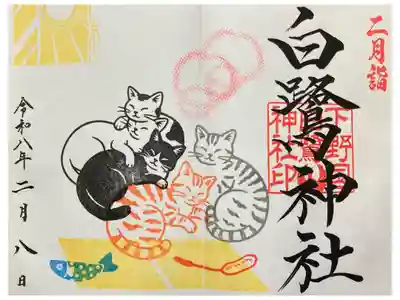 二月詣
白鷺神社
下野国
白鷺
神社印
令和八年 二月 八日